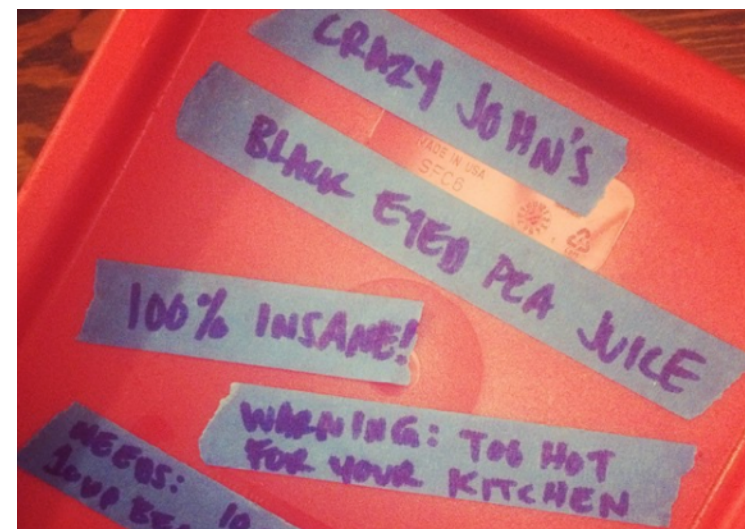 CRAZY JOHN'S
MADE IN USA
SFC6
BLACK EYED PEA JUICE
100% INSANE!
WARNING: TOO HOT
FOR YOUR KITCHEN
NEEDS: 10
1 CUP